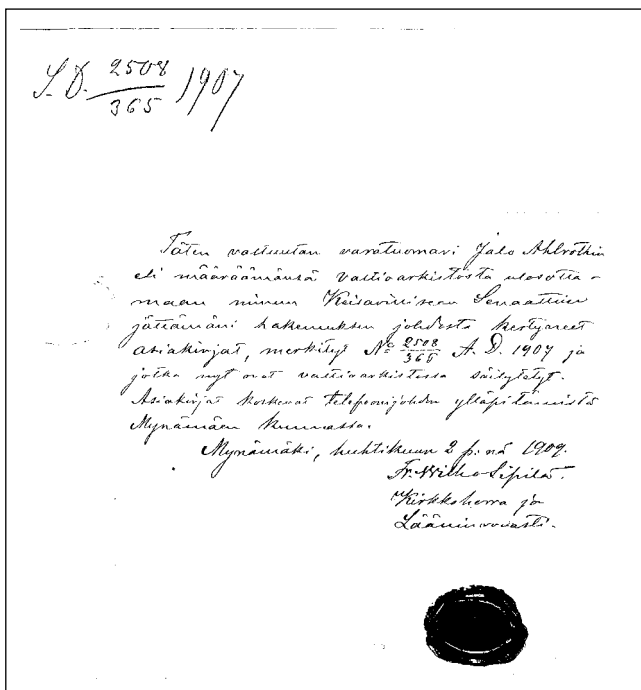 S. D. 2508/365 1907
Täten valtuutan varatuomari Jalo Ahlrothin
eli määräämänsä valtioarkistosta ulosotta-
maan minun Keisarilliseen Senaattiin
jättämäni hakemuksen johdosta kertyneet
asiakirjat, merkityt No 2508/365 A. D. 1907 ja
jotka nyt ovat valtioarkistossa säilytetyt.
Asiakirjat koskevat telefoonijohdon ylläpitämistä
Mynämäen kunnassa.
Mynämäki, huhtikuun 2 p:nä 1909.
Fr. Wilho Sipilä.
Kirkkoherra ja
Lääninrovasti.